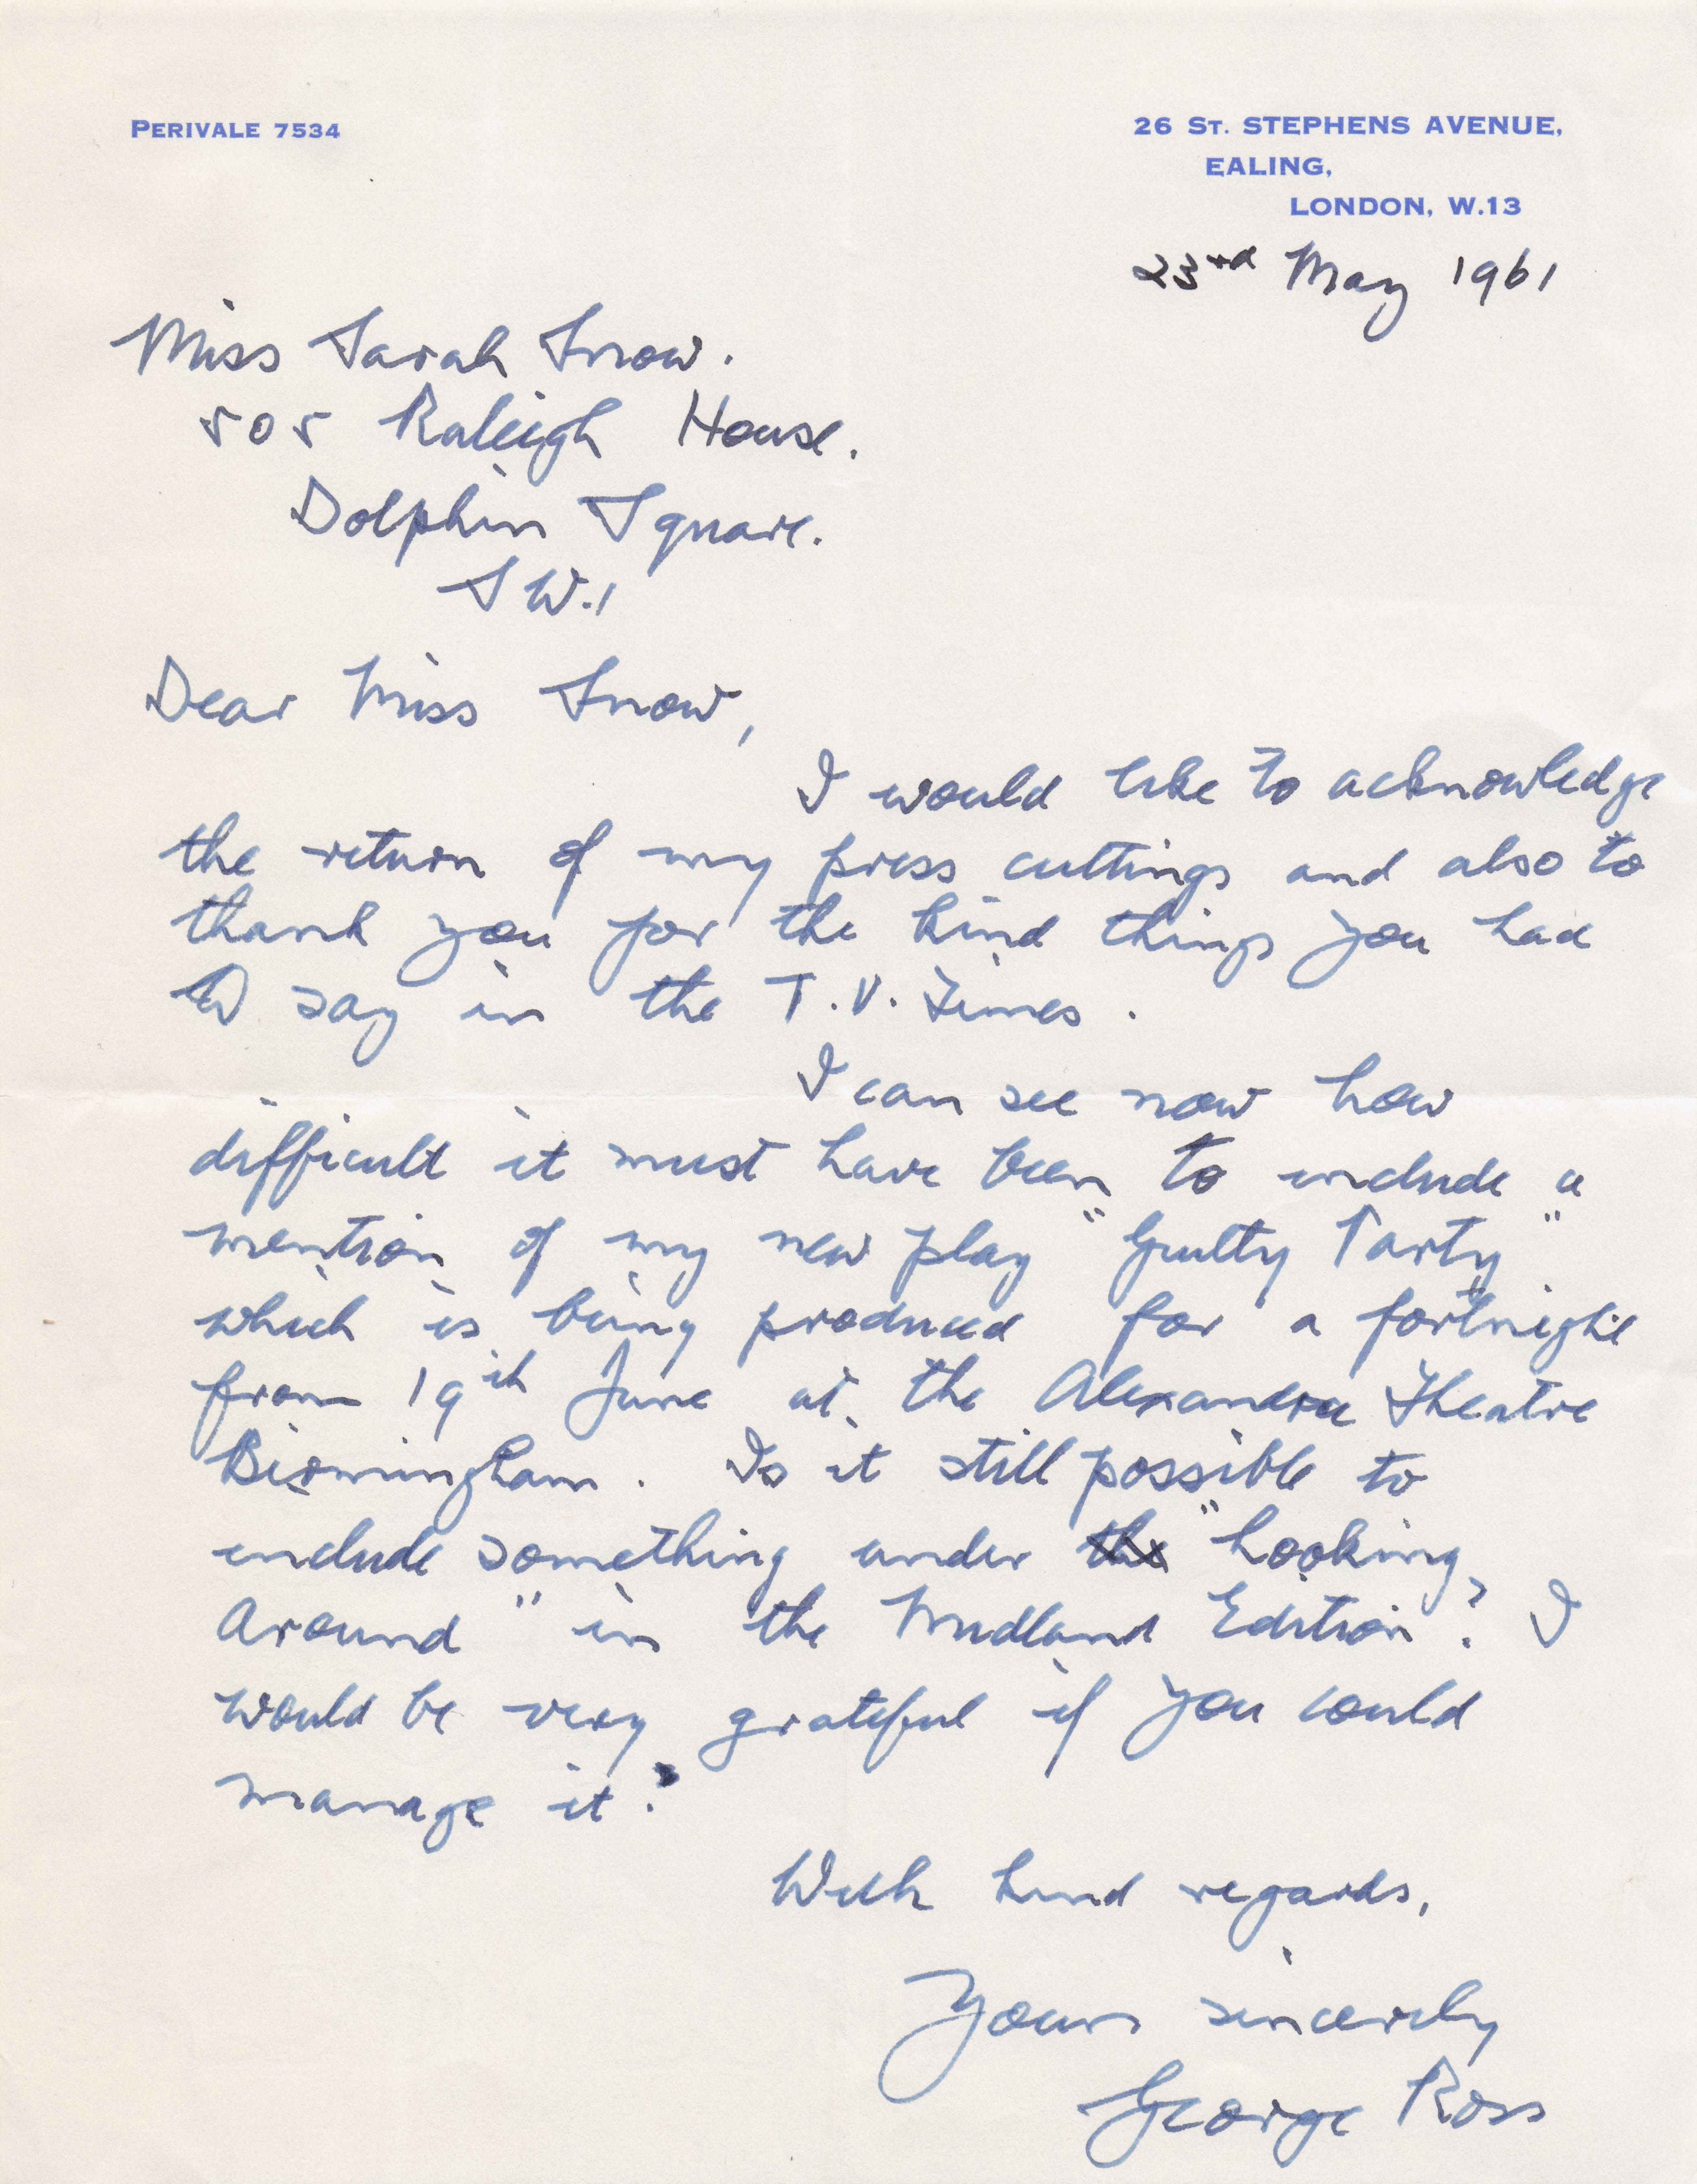 PERIVALE 7534
26 ST. STEPHENS AVENUE,
EALING,
LONDON, W.13
23rd May 1961
Miss Sarah Snow.
505 Raleigh House.
Dolphin Square.
S W.1
Dear Miss Snow,
I would like to acknowledge
the return of my press cuttings and also to
thank you for the kind things you had
to say in the T.V. Times.
I can see now how
difficult it must have been to include a
mention of my new play "Guilty Party"
which is being produced for a fortnight
from 19th June at the Alexandra Theatre
Birmingham. Is it still possible to
include something under the "Looking
Around" in the Midland Edition? I
would be very grateful if you could
manage it?
With kind regards,
Yours sincerely
George Ross